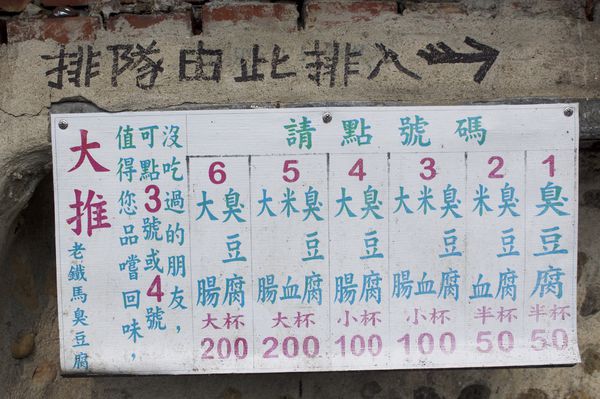 排隊由此排入→
請點號碼
1
臭豆腐
半杯
50
2
臭豆腐
米血
半杯
50
3
臭豆腐
米血
大腸
小杯
100
4
臭豆腐
大腸
小杯
100
5
臭豆腐
米血
大腸
大杯
200
6
臭豆腐
大腸
大杯
200
沒吃過的朋友，
可點3號或4號
值得您品嚐回味，
大推
老鐵馬臭豆腐